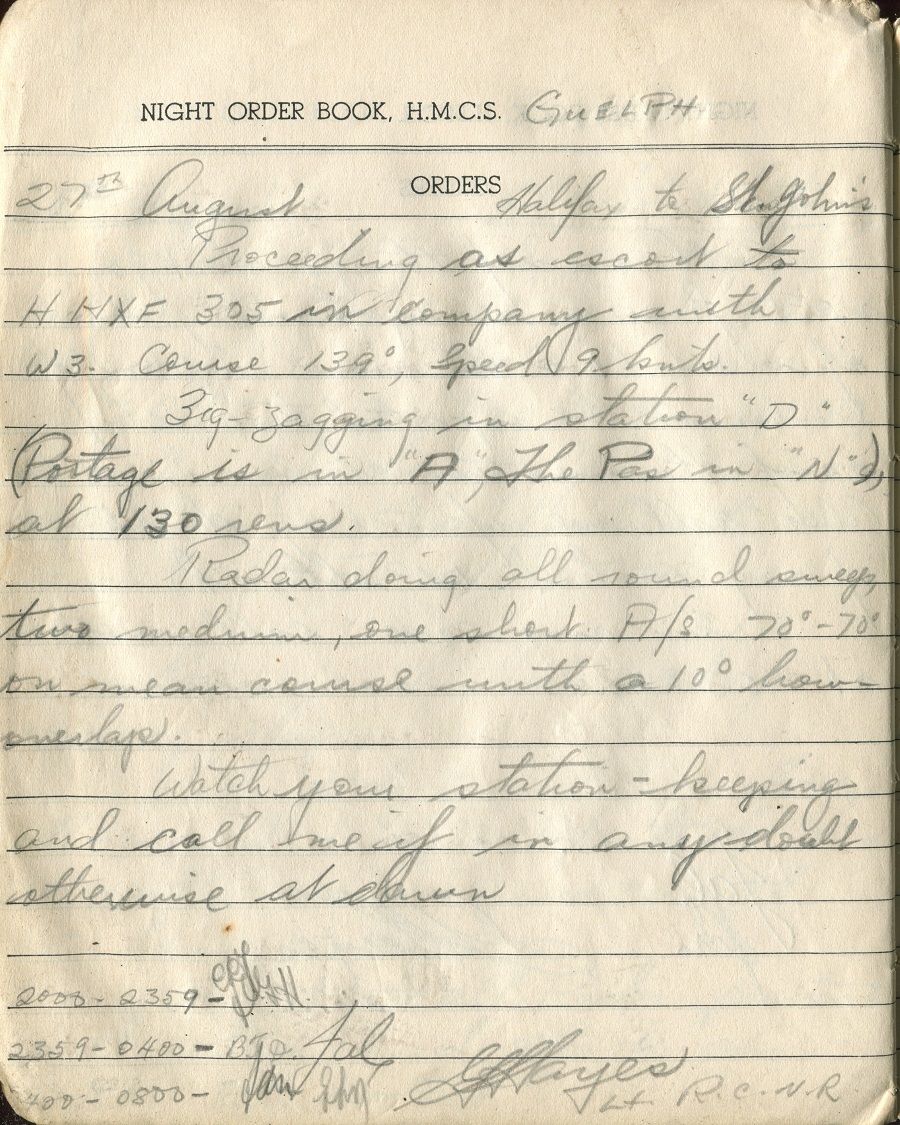 NIGHT ORDER BOOK, H.M.C.S. GUELPH
ORDERS
27th August Halifax to St. John's
Proceeding as escort to
H HXF 305 in company with
W3. Course 139°, Speed 9 knts.
Zig-zagging in station "D"
(Portage is in "A", The Pas in "N"),
at 130 revs.
Radar doing all round sweeps,
two medium, one short. A/s 70°-70°
on mean course with a 10° bow-
overlap.
Watch your station-keeping
and call me if in any doubt
otherwise at dawn
2000 - 2359 -
2359 - 0400 -
400 - 0800 -
GHHayes
Lt. R.C.N.R.